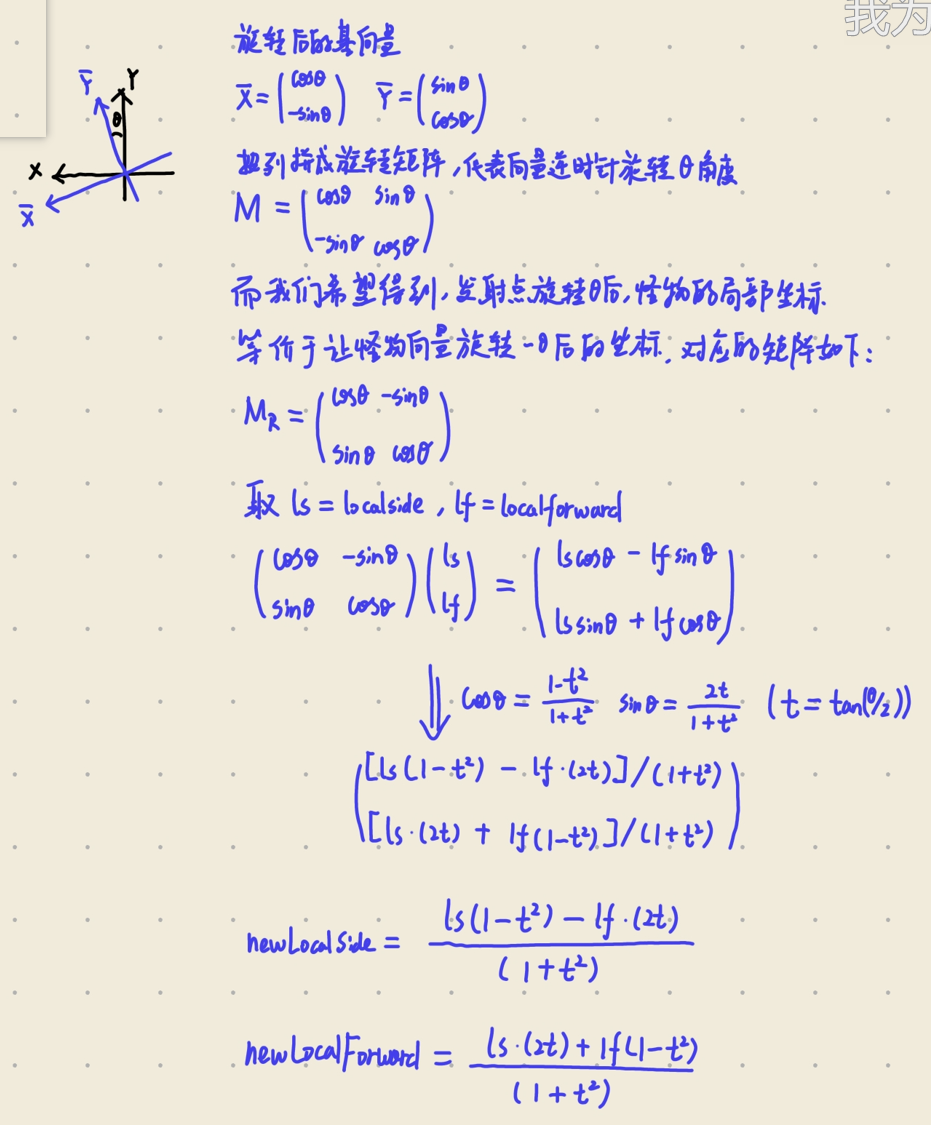 我为
旋转后的基向量
Y̅ Y θ X X̅
X̅ = (cosθ -sinθ) Y̅ = (sinθ cosθ)
按列拼成旋转矩阵,代表向量逆时针旋转θ角度
M = (cosθ sinθ
-sinθ cosθ)
而我们希望得到,发射点旋转θ后,怪物的局部坐标.
等价于让怪物向量旋转-θ后的坐标,对应的矩阵如下:
M_R = (cosθ -sinθ
sinθ cosθ)
取 ls = localside, lf = localforward
(cosθ -sinθ) (ls) = (lscosθ - lfsinθ)
(sinθ cosθ) (lf) (lssinθ + lfcosθ)
⇓ cosθ = (1-t²)/(1+t²) sinθ = 2t/(1+t²) (t = tan(θ/2))
([ls(1-t²) - lf·(2t)]/(1+t²)
[ls·(2t) + lf(1-t²)]/(1+t²))
newLocalSide = ls(1-t²) - lf·(2t)
(1+t²)
newLocalForward = ls·(2t) + lf(1-t²)
(1+t²)